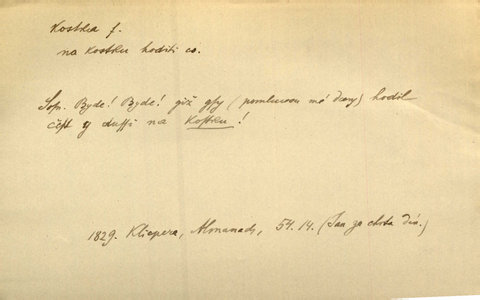 Kostka f.
na kostku hoditi co.
Sop. Byde! Byde! giž gsy (pomluwou mé dcery) hodil
čest y dussi na kostku!
1829. Klicpera, Almanach, 54. 14. (Jan za chrta dán.)